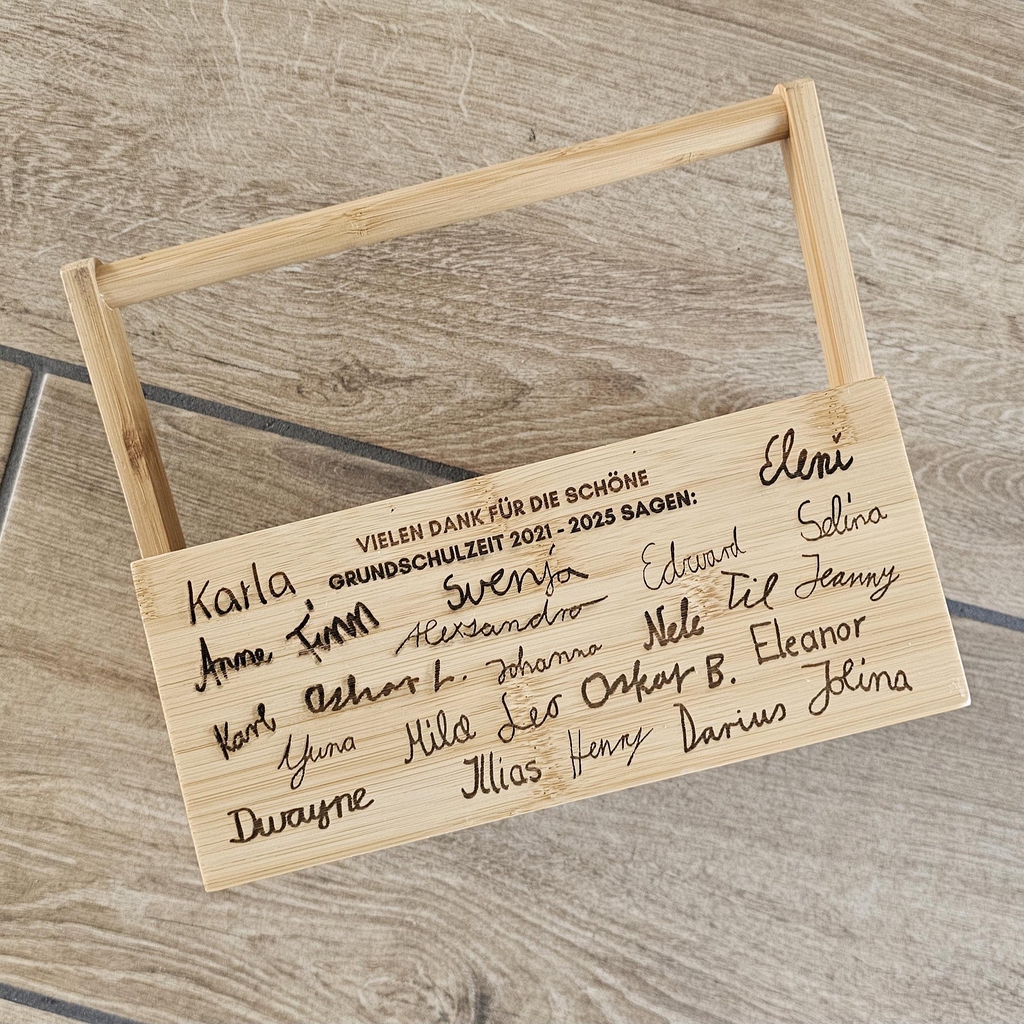 VIELEN DANK FÜR DIE SCHÖNE
GRUNDSCHULZEIT 2021 - 2025 SAGEN:
Eleni
Karla
Svenja
Edward
Selina
Anne
Finn
Alexsandro
Til
Jeanny
Karl
Oskar L.
Johanna
Nele
Eleanor
Yuna
Mila
Leo
Oskar B.
Jolina
Dwayne
Illias
Henry
Darius